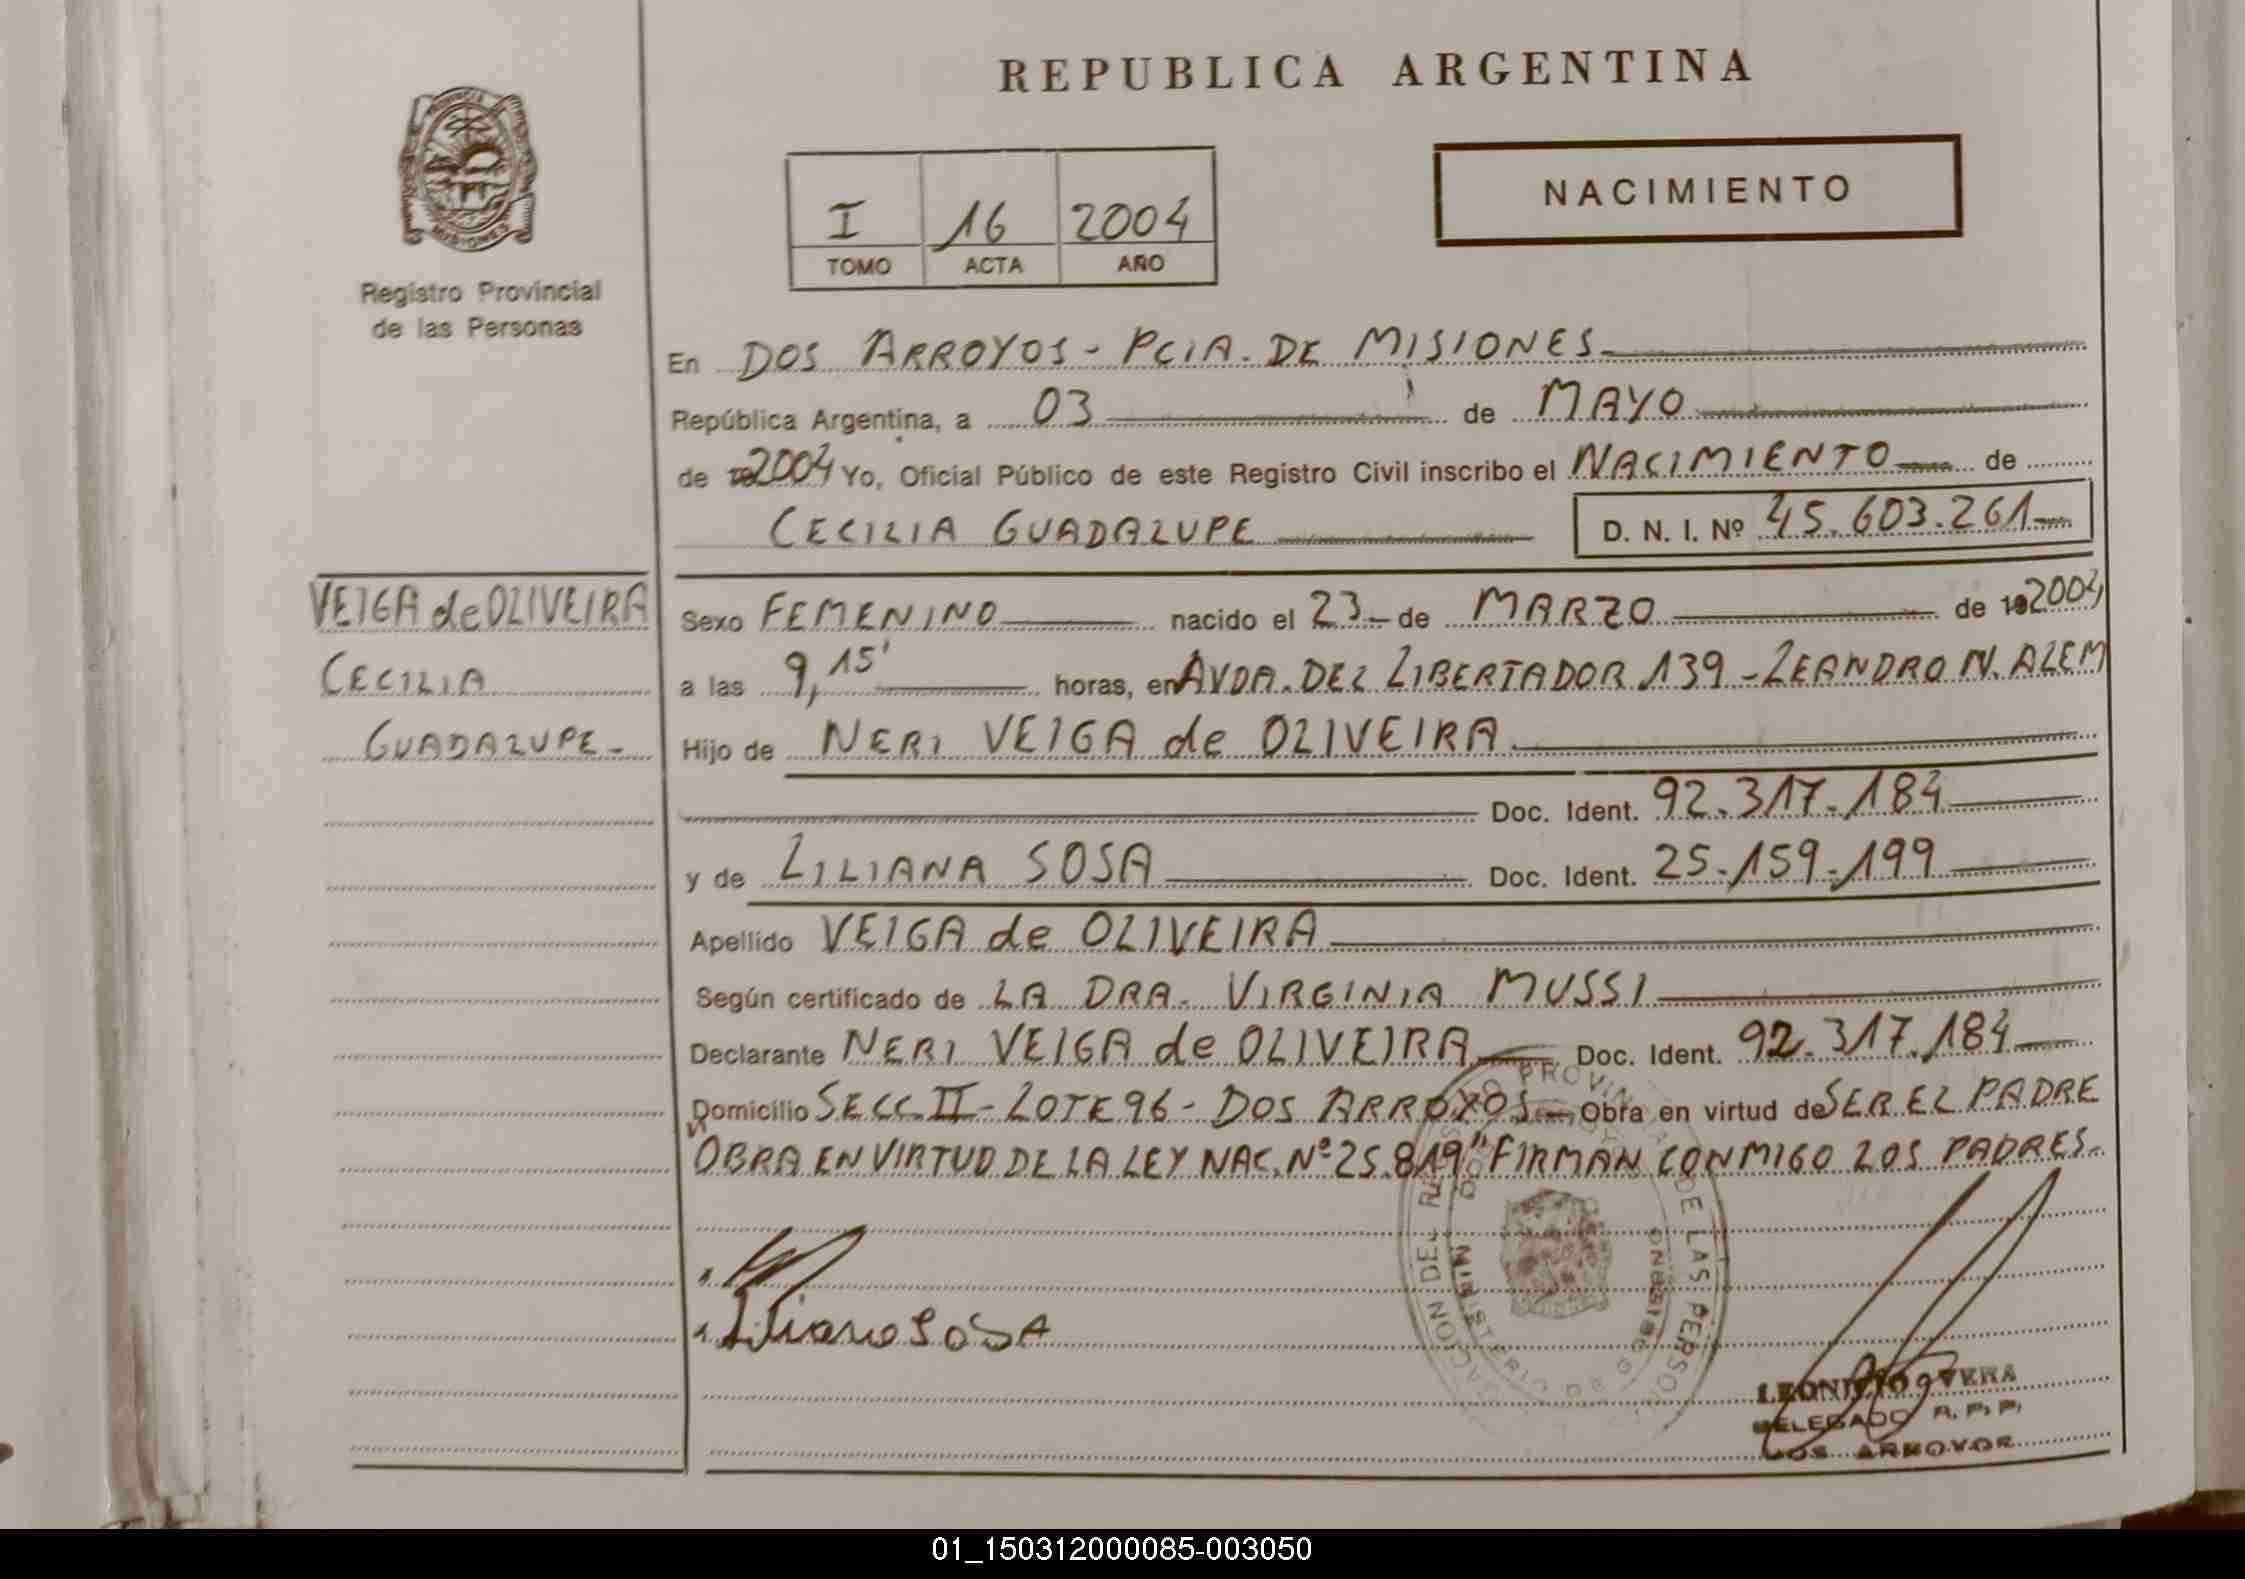 REPUBLICA ARGENTINA
NACIMIENTO
I 16 2004
TOMO ACTA AÑO
PROVINCIA
MISIONES
Registro Provincial
de las Personas
En DOS ARROYOS - PCIA. DE MISIONES
República Argentina, a 03 de MAYO
de 2004 Yo, Oficial Público de este Registro Civil inscribo el NACIMIENTO de
CECILIA GUADALUPE D. N. I. Nº 45.603.261
VEIGA de OLIVEIRA
CECILIA
GUADALUPE-
Sexo FEMENINO nacido el 23 de MARZO de 2004
a las 9,15' horas, en AVDA. DEL LIBERTADOR 139 - LEANDRO N. ALEM
Hijo de NERI VEIGA de OLIVEIRA
Doc. Ident. 92.317.184
y de LILIANA SOSA Doc. Ident. 25.159.199
Apellido VEIGA de OLIVEIRA
Según certificado de LA DRA. VIRGINIA MUSSI
Declarante NERI VEIGA de OLIVEIRA Doc. Ident. 92.317.184
Domicilio SECC. II - LOTE 96 - DOS ARROYOS Obra en virtud de SER EL PADRE
"OBRA EN VIRTUD DE LA LEY NAC. Nº 25.819" FIRMAN CONMIGO LOS PADRES.
Liliana SOSA
DE LAS PERSONAS
MINISTERIO DE GOBIERNO
VERA
DELEGADO R. P. P.
DOS ARROYOS
01_150312000085-003050